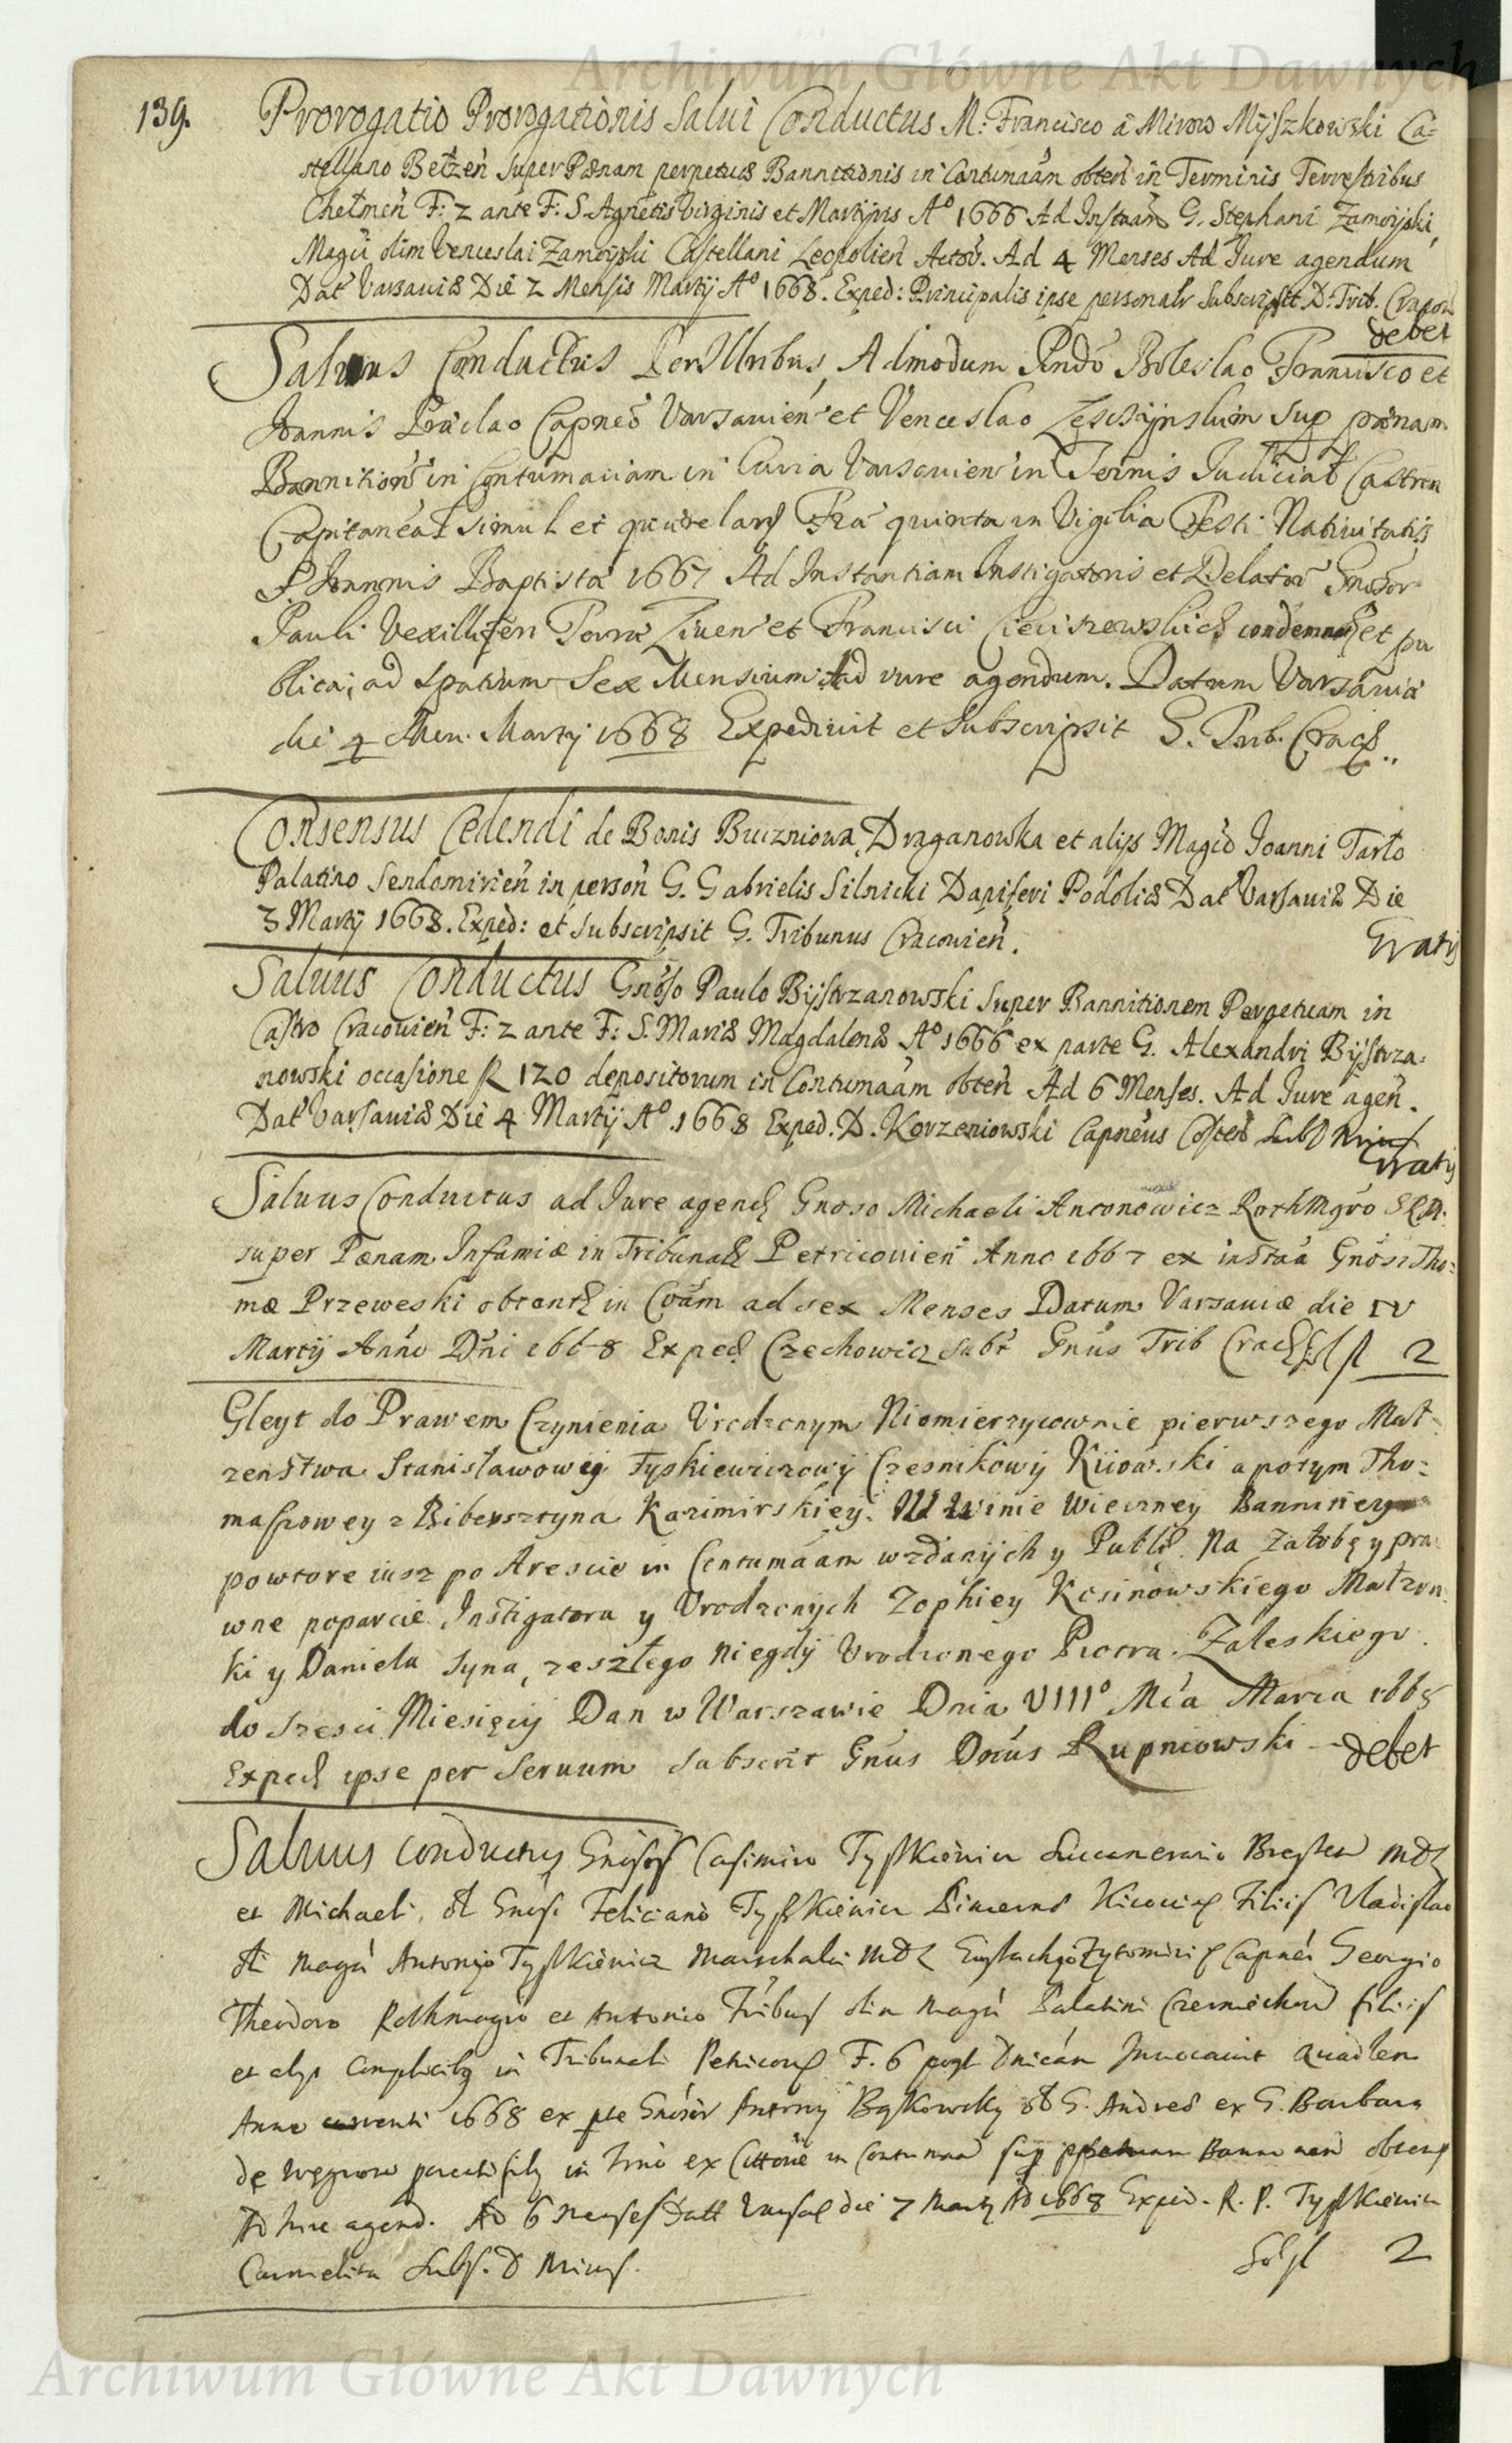 Archiwum Główne Akt Dawnych
139.
Prorogatio Prorogationis Salui Conductus M: Francisco à Mirow Myszkowski Ca=
stellano Bełzeń super Pœnam perpetuæ Bannitionis in Contumaām obteń in Terminis Terrestribus
Chełmeń F: 2 ante F: S. Agnetis Virginis et Martyris A° 1666 Ad Instaām G. Stephani Zamoyski,
Magci olim Venceslai Zamoyski Castellani Leopolień Actor. Ad 4 Menses Ad Jure agendum
Dat Varsauiæ Die 2 Mensis Martij A° 1668. Exped: Principalis ipse personalr Subscripsit D. Trib. Cracou
debet
Saluus Conductus Perillribus, Admodum Rndo Boleslao Francisco et
Joannis Præclao Capneo Varsauien et Venceslao Leschÿnskim sup pœnam
Bannition in Contumaciam in Curia Varsauien in Terinis Judicial Castren
Capitaneal simul et querelarz Fra quinta in Vigilia Festi Natiuitatis
S Joannis Baptista 1667 Ad Instantiam Instigatoris et Delator Gnosor
Pauli Vexilliferi Terræ Liuen et Francisci Cieciszewskich condemnaz et pu
blica; ad spatium Sex Mensium Ad Iure agendum. Datum Varsauiæ
die 4 Men. Martij 1668 Expediuit et Subscripsit G. Trib. Crac.
Consensus Cedendi de Bonis Buczniowa, Draganowka et alijs Magco Joanni Tarło
Palatino Sendomirień in persoń G. Gabrielis Silnicki Dapiferi Podoliæ Dat Varsauiæ Die
3 Martij 1668. Exped: et subscripsit G. Tribunus Cracouień.
Gratis
Saluus Conductus Gnoso Paulo Bystrzanowski super Bannitionem Perpetuam in
Castro Cracouień F: 2 ante F: S. Mariæ Magdalenæ A° 1666 ex parte G. Alexandri Bystrza-
nowski occasione R 120 depositorum in Contumaām obteń Ad 6 Menses. Ad Jure ageń.
Dat Varsauiæ Die 4 Martij A° 1668 Exped. D. Korzeniowski Capneus Subs
Gratis
Saluus Conductus ad Jure agend Gnoso Michaeli Antonowicz Rothmgro SRM.
super Pœnam Infamiæ in Tribunali Petricouien Anno 1667 ex instaa Gnosi Tho=
mæ Przeweski obtent in Coām ad sex Menses Datum Varsauiæ die IV
Martij Anno Dni 1668 Exped Czechowicz subt Gnus Trib Crac Sol fl 2
Gleyt do Prawem Czynienia Vrodzonym Niemierzycownie pierwszego Mał-
zenstwa Stanisławowey Tyskiewiczowy Czesnikowy Kiiowski a potym Tho=
maszowey z Bibersztyna Kazimirskiey. W winie wieczney Banniciey
powtore iusz po Arescie in Contumaām wzdanijch y Publi. Na załobę y pra
wne poparcie Instigatora y Vrodzonych Zophiey Kosinowskiego Małzon-
ki y Daniela Syna, zeszłego niegdy Vrodzonego Piotra Zaleskiego.
do szesci Miesięcy Dan w Warszawie Dnia VIII° Mca Marca 1668
Exped ipse per seruum Subscrit Gnus Dnus Rupniowski - debet
Saluus conductus Casimiro Tyszkiewicz Succamerario Bresten MDL
et Michaeli, olt Gnosi Feliciano Tyszkiewicz Pincernæ Kiiouien Filiis Vladislao
olt Magci Antonio Tyszkiewicz Marschalci MDL Eustachgo Zytomiri Capnei Georgio
Theodoro Rothmagro et Antonio Tribus olim Magci Palatini Czerniechow filiis
et alys complicibus in Tribunali Petricou F. 6 post Dnicam Inuocauit
Anno currenti 1668 ex pte Gnosor Antony Bykowsky olt G. Andreæ ex G. Barbara
de in ex in sup Bannnen obtent
Ad Iure agend. Ad 6 Menses Datt Varsa die 7 Marty Ao 1668 Exped. R. P. Tyszkiewicz
Carmelita Subs. D Minus.
Sol fl 2
Archiwum Główne Akt Dawnych